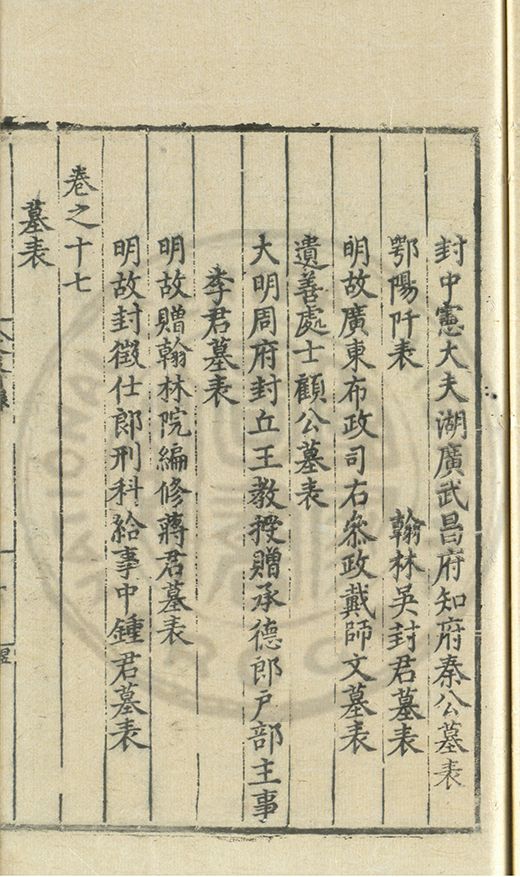 封中憲大夫湖廣武昌府知府秦公墓表
鄂陽阡表　翰林吳封君墓表
明故廣東布政司右叅政戴師文墓表
遺善處士顧公墓表
大明周府封丘王教授贈承德郎戶部主事
李君墓表
明故贈翰林院編修蔣君墓表
明故封徵仕郎刑科給事中鍾君墓表
卷之十七
墓表